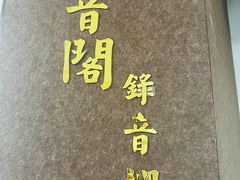 音閣
錄音